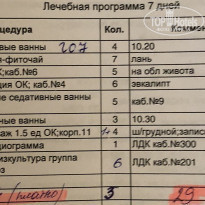 Лечебная программа 7 дней
цедура Кол. Комм
вые ванны 207 4 10.20
я-фиточай 7 лань
ОК;каб.№6 5 на обл живота
ция ОК; каб.№4 6 эвкалипт
ие седативные ванны 5 каб.№9
ные ванны 3 10.30
аж 1.5 ед ОК;корп.11 4 ш/грудной;запис
диограмма 1 ЛДК каб.№300
изкультура группа 6 ЛДК каб.№201
3 29